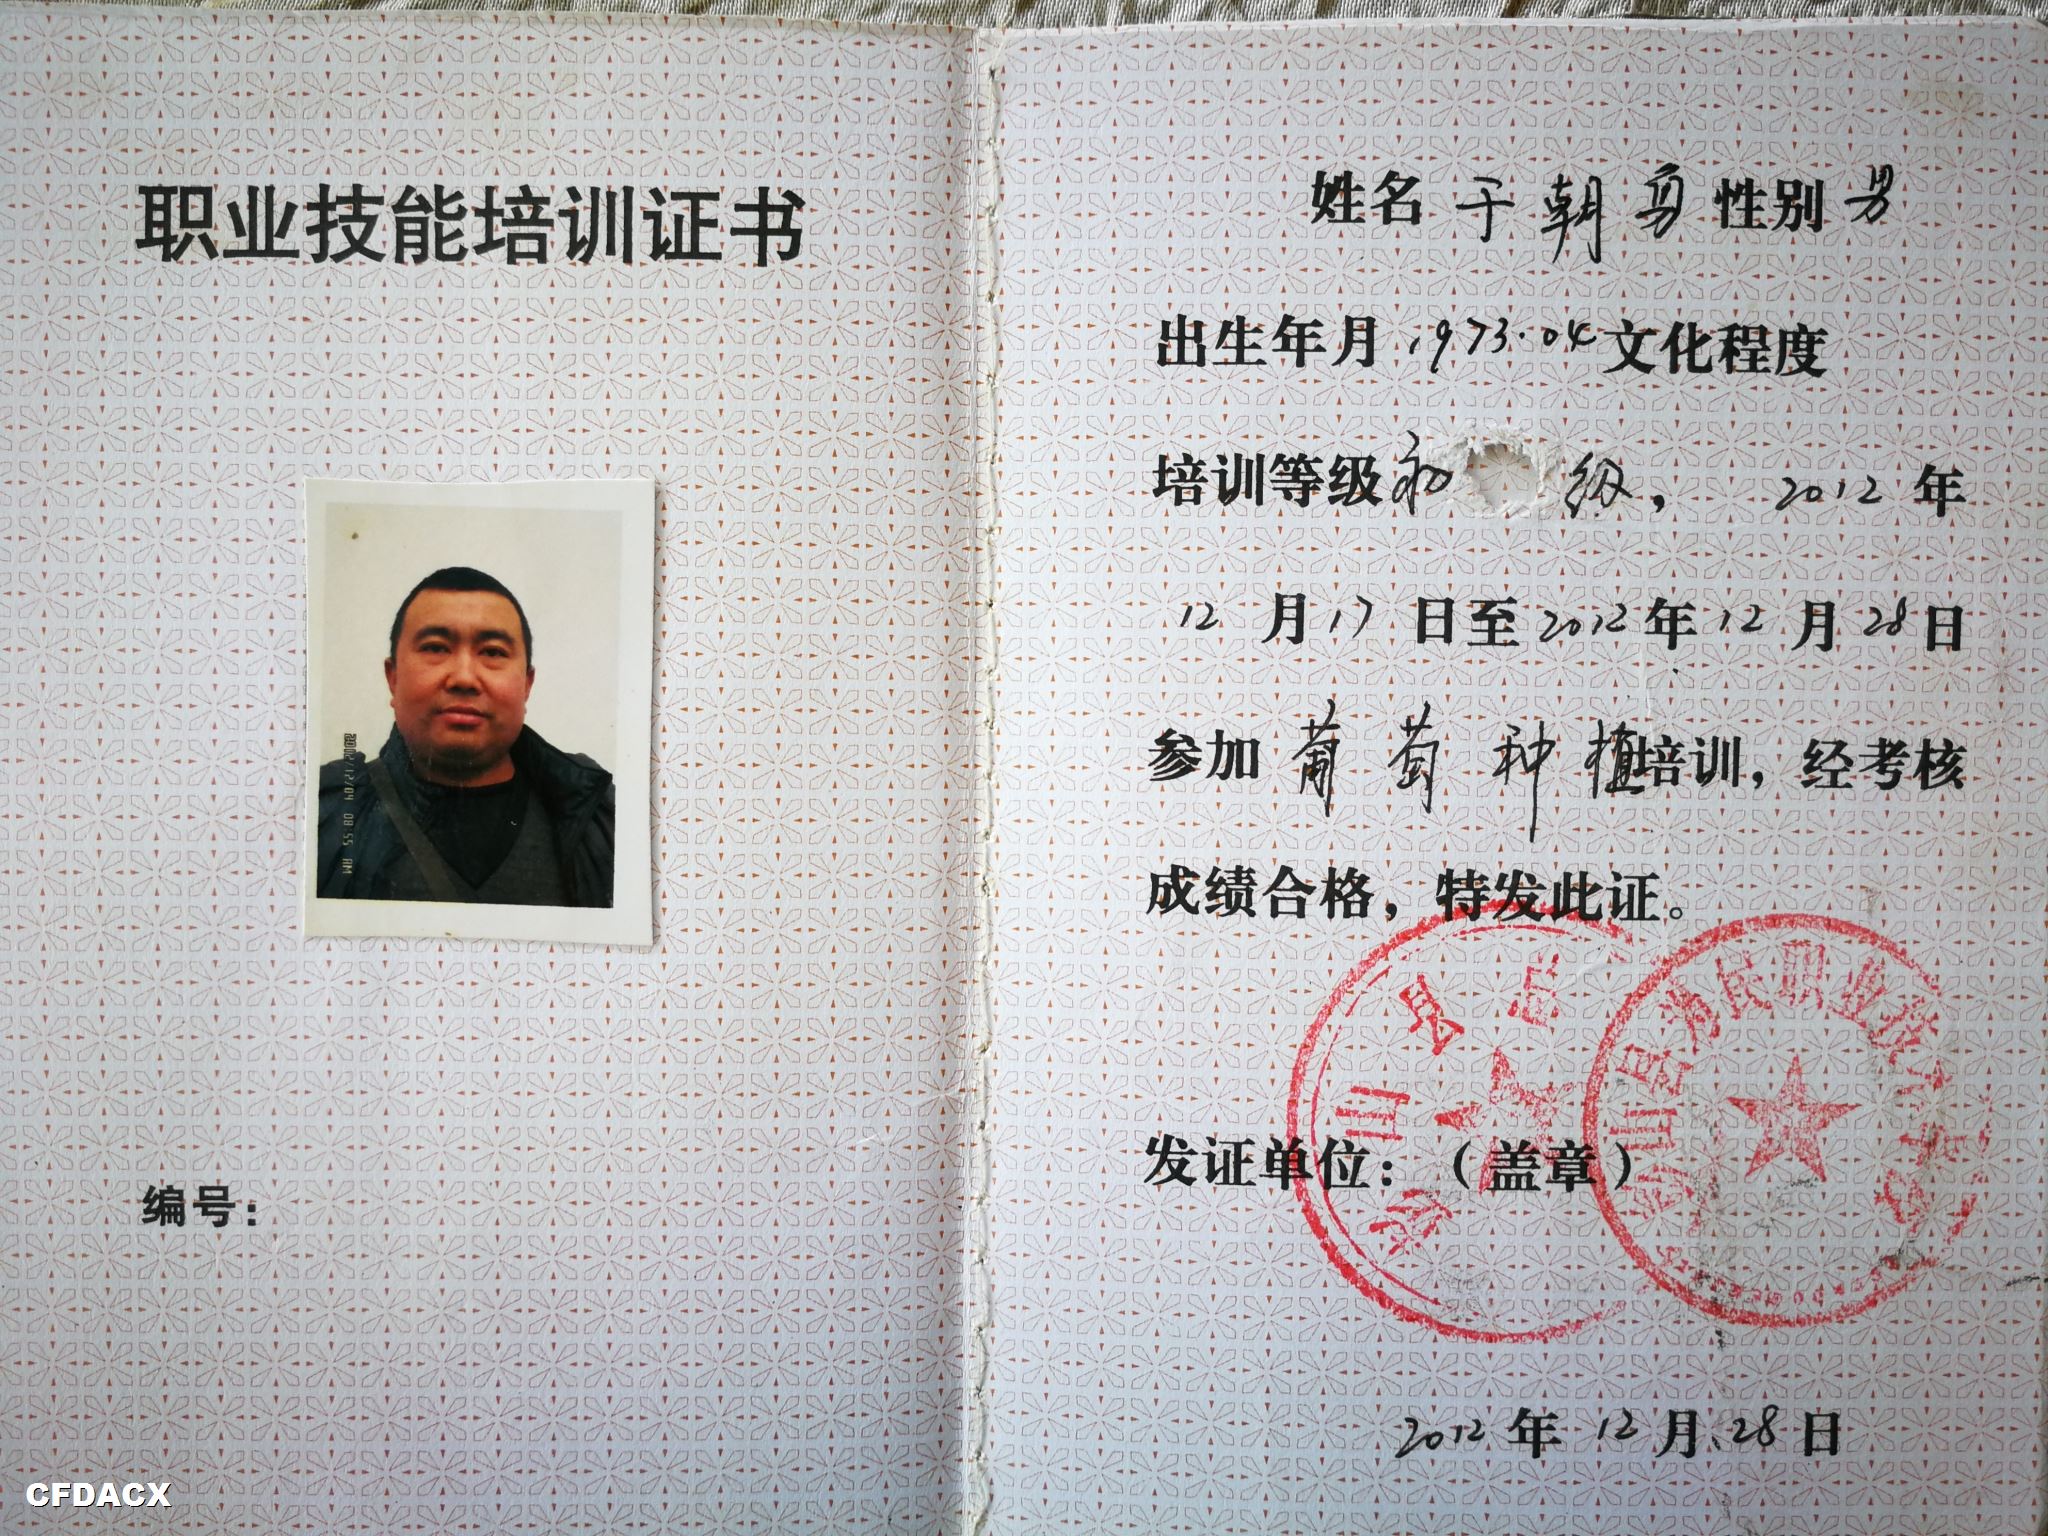 职业技能培训证书
编号：
姓名 于朝勇 性别 男
出生年月 1973.04 文化程度
培训等级 初 级， 2012 年
12 月 17 日至 2012 年 12 月 28 日
参加 葡萄种植 培训，经考核
成绩合格，特发此证。
发证单位：（盖章）
2012 年 12 月 28 日
CFDACX